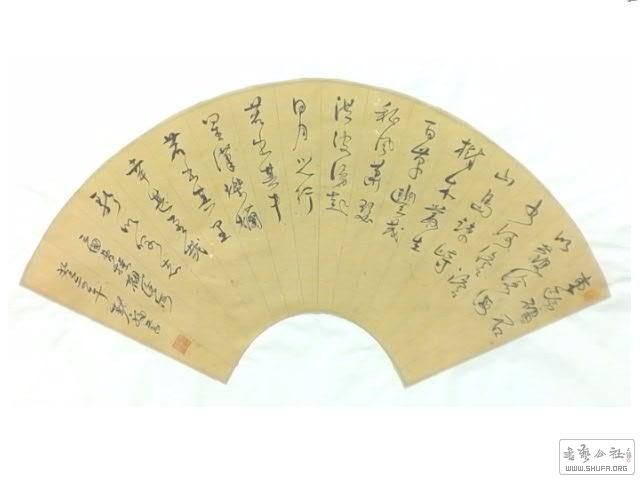 東臨碣石
以觀滄海
水何澹澹
山島竦峙
樹木叢生
百草豐茂
秋風蕭瑟
洪波湧起
日月之行
若出其中
星漢燦爛
若出其里
幸甚至哉
歌以詠志
WWW.SHUFA.ORG